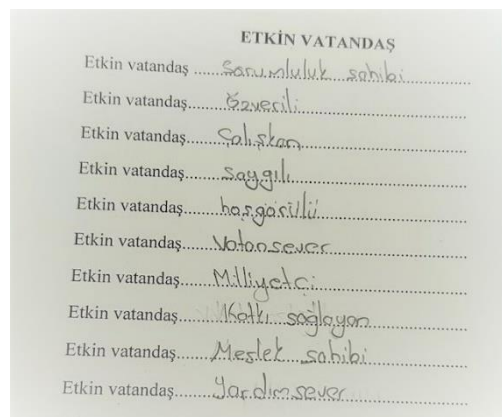 ETKİN VATANDAŞ
Etkin vatandaş ......Sorumluluk sahibi......
Etkin vatandaş.......Özverili......
Etkin vatandaş.......Çalışkan......
Etkin vatandaş.......saygılı......
Etkin vatandaş.......hoşgörülü......
Etkin vatandaş.......Vatansever......
Etkin vatandaş.......Milliyetçi......
Etkin vatandaş.......Katkı sağlayan......
Etkin vatandaş.......Meslek sahibi......
Etkin vatandaş.......Yardımsever......